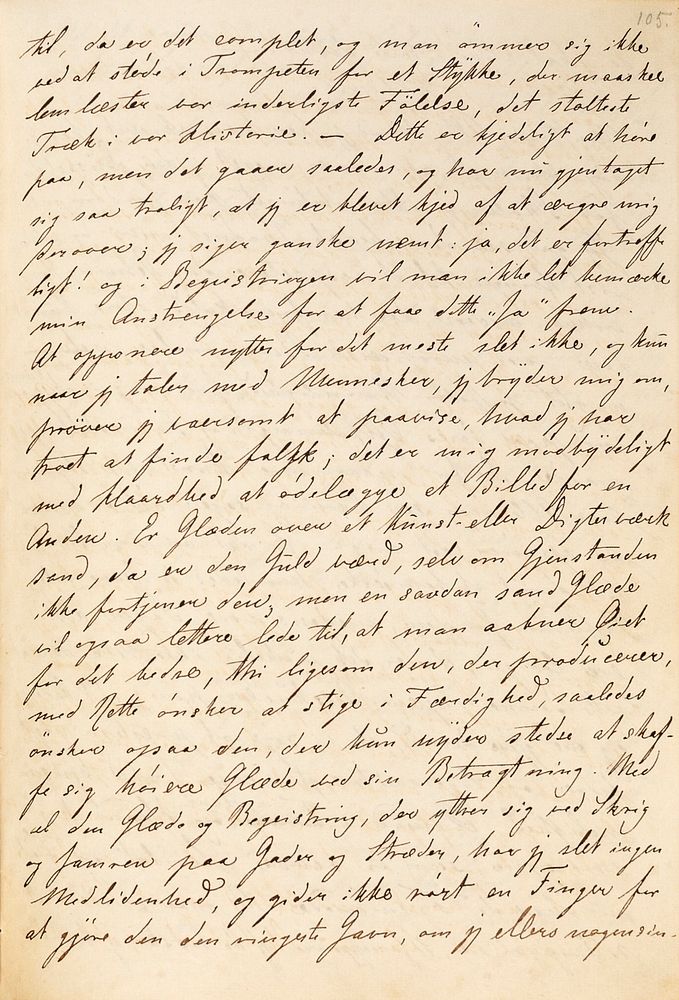 105.
til, da er det complet, og man ömmer sig ikke
ved at støde i Trompeten for et Stykke, der maaskee
lemlæster vor inderligste Følelse, det stolteste
Træk i vor Historie. — Dette er kjedeligt at høre
paa, men det gaaer saaledes, og har nu gjentaget
sig saa troligt, at jeg er blevet kjed af at ærgre mig
derover; jeg siger ganske nemt: ja, det er fortreffe
ligt! og i Begeistringen vil man ikke let bemærke
min Anstrengelse for at faae dette „Ja" frem.
At opponere nytter for det meste slet ikke, og kun
naar jeg taler med Mennesker, jeg bryder mig om,
prøver jeg varsomt at paavise, hvad jeg har
troet at finde falsk; det er mig modbydeligt
med Haardhed at ødelægge et Billed for en
Anden. Er Glæden over et Kunst- eller Digterværk
sand, da er den Guld værd, selv om Gjenstanden
ikke fortjener den; men en saadan sand Glæde
vil ogsaa lettere lede til, at man aabner Øiet
for det bedre, thi ligesom den, der producerer,
med Rette ønsker at stige i Færdighed, saaledes
ønsker ogsaa den, der kun nyder stedse at skaf-
fe sig høiere Glæde ved sin Betragtning. Med
al den Glæde og Begeistring, der yttrer sig ved Skrig
og Jamren paa Gader og Stræder, har jeg slet ingen
Medlidenhed, og gider ikke rørt en Finger for
at gjøre den den ringeste Gavn, om jeg ellers nogensin-